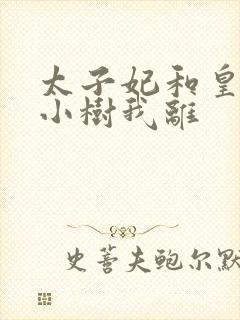 太子妃和皇
小樹我離
史蒈夫鲍尔默